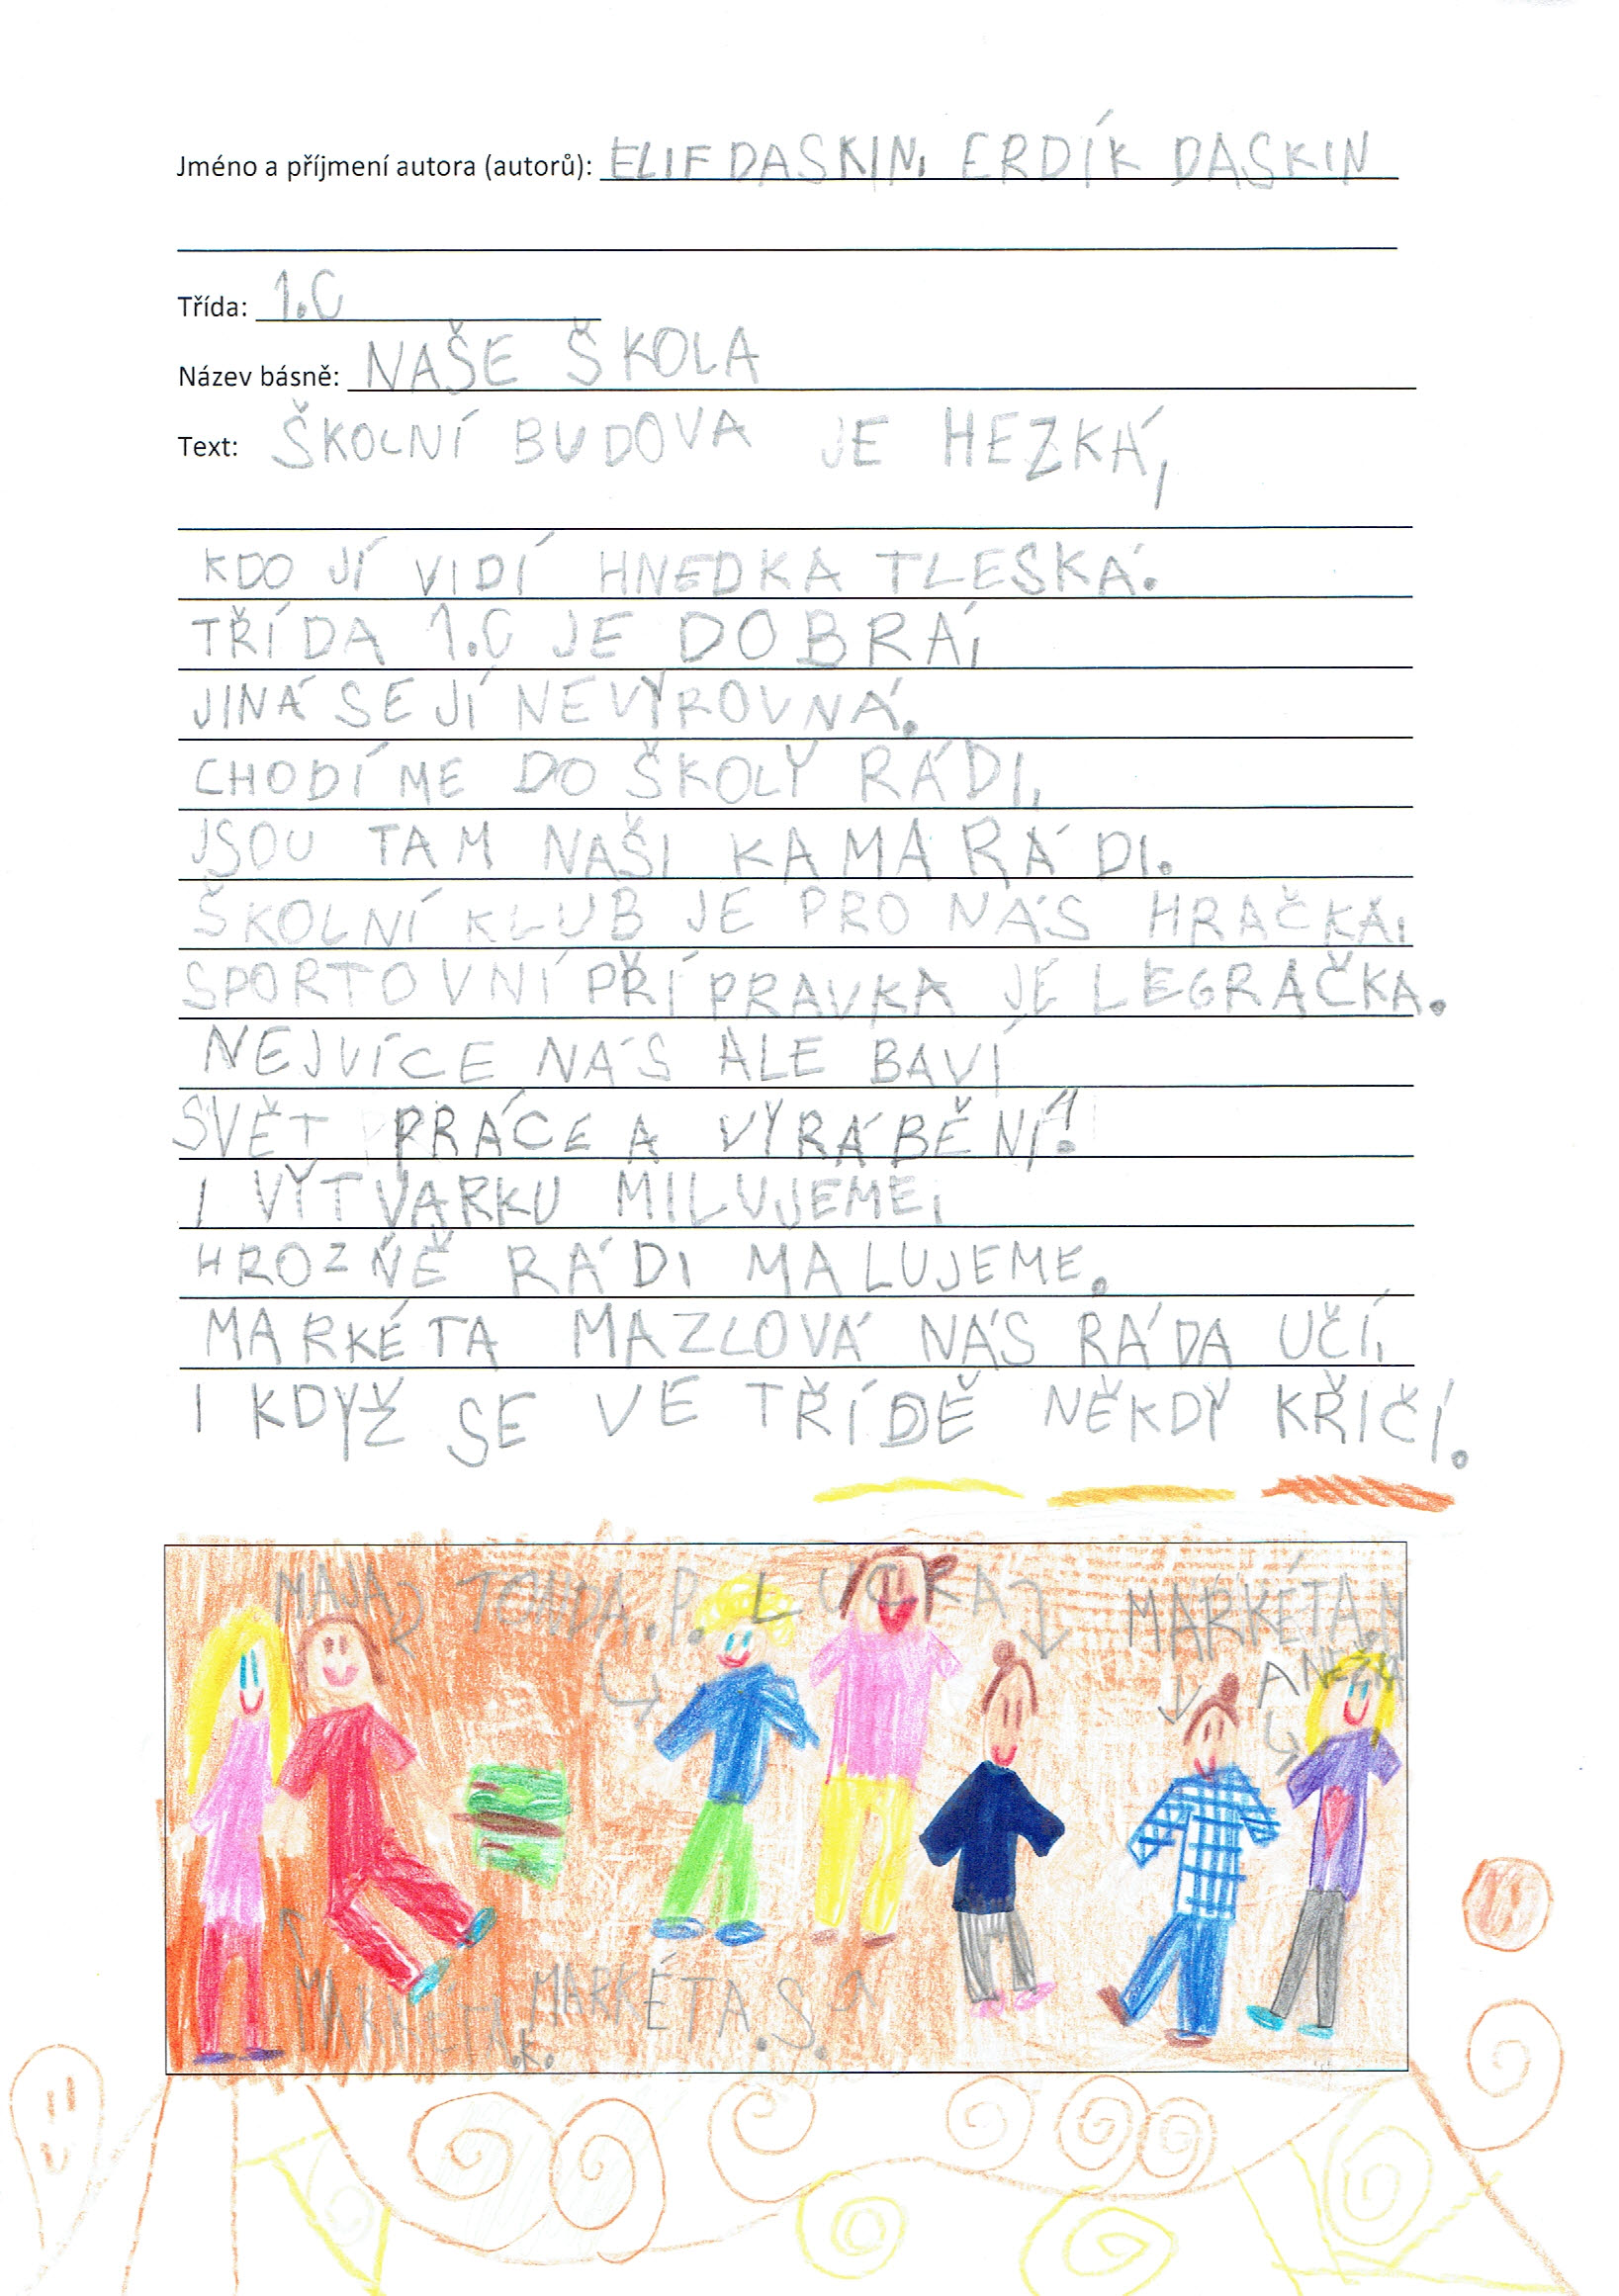 Jméno a příjmení autora (autorů): ELIF DASKIN, ERDÍK DASKIN
Třída: 1.C
Název básně: NAŠE ŠKOLA
Text: ŠKOLNÍ BUDOVA JE HEZKÁ,
KDO JÍ VIDÍ HNEDKA TLESKÁ.
TŘÍDA 1.C JE DOBRÁ,
JINÁ SE JÍ NEVYROVNÁ.
CHODÍME DO ŠKOLY RÁDI,
JSOU TAM NAŠI KAMARÁDI.
ŠKOLNÍ KLUB JE PRO NÁS HRAČKA,
SPORTOVNÍ PŘÍPRAVKA JE LEGRAČKA.
NEJVÍCE NÁS ALE BAVÍ
SVĚT PRÁCE A VYRÁBĚNÍ!
I VÝTVARKU MILUJEME,
HROZNĚ RÁDI MALUJEME.
MARKÉTA MAZLOVÁ NÁS RÁDA UČÍ,
I KDYŽ SE VE TŘÍDĚ NĚKDY KŘIČÍ.
MAJA TONDA.P. LUCKA MARKÉTA.N
ANEŽKA
MARKÉTA.K. MARKÉTA.S.